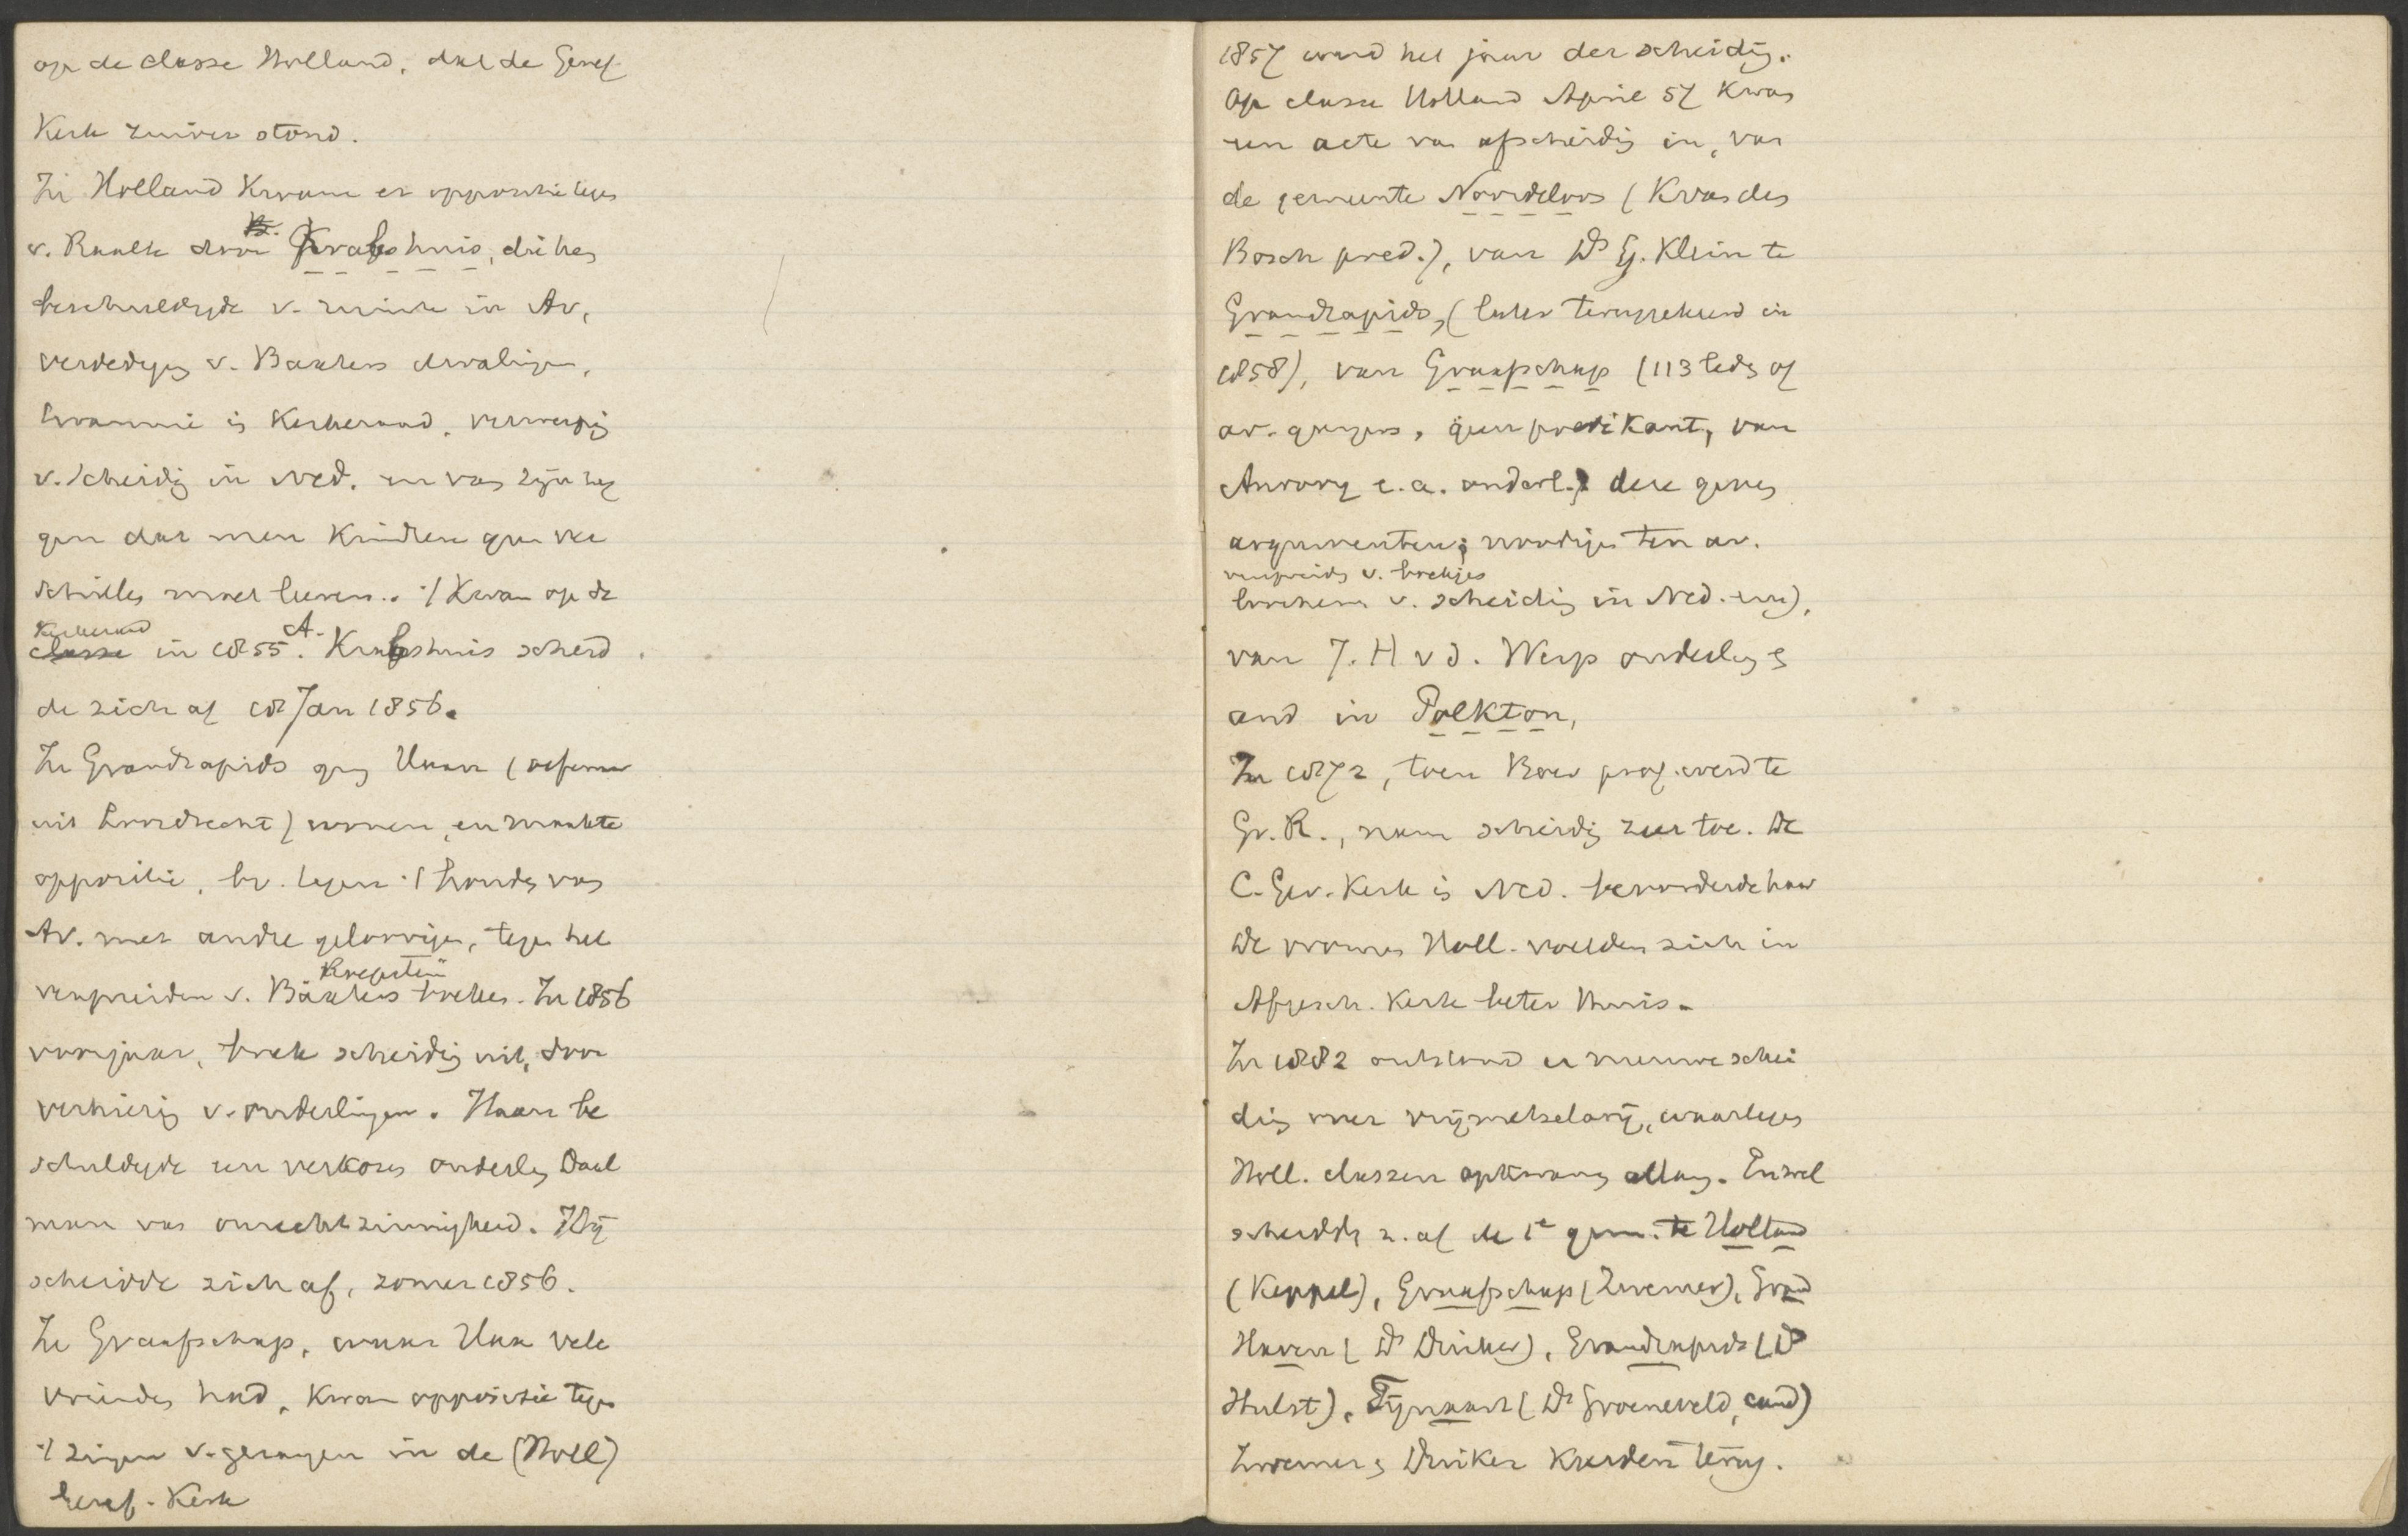 op de classe Holland, dat de Geref.
Kerk zuiver stond.
In Holland kwam er oppositie tegen
v. Raalte door Krabshuis, die hem
beschuldigde v. in Av,
verdediging v. Baxters dwalingen,
tirannie in Kerkeraad, verwerping
v. scheiding in Ned. en van zijn zeg
gen dat men kinderen geen
moet leeren. 't Kwam op de
Kerkeraad
classe in 1855. A. Krabshuis scheid
de zich af 18 Jan 1856.
In Grandrapids ging Haan (oefenaar
uit Dordrecht) wonen, en maakte
oppositie, bv. tegen 't houden van
Av. met andre geloovigen, tegen het
verspreiden v. Baxters boekes. In 1856
voorjaar, brak scheiding uit, door
verkiezing v. ouderlingen. Haan be
schuldigde een verkozen ouderling Daal
man van onrechtzinnigheid. Hij
scheidde zich af, zomer 1856.
In Graafschap, waar Haan vele
vrienden had, kwam oppositie tegen
't zingen v. gezangen in de (Holl)
Geref. Kerk
1857 werd het jaar der scheidig.
Op classe Holland April 57 kwam
een acte van afscheidig in, van
de gemeente Noordeloos (K. van den
Bosch pred.), van Ds G. Klein te
Grandrapids, (later teruggekeerd in
1858), van Graafschap (113 leden of
av. gangers, geen predikant, van
Anrooy e.a. ouderl.) deze geven
argumenten; noodigen ten av.
verspreiding v. boekjes
v. scheiding in Ned. enz),
van J. H v d. Werp ouderling &
and in Polkton,
In 1872, toen Boer prof. werd te
Gr. R., nam scheidig zeer toe. De
C. Gev. Kerk in Ned. bevorderde haar
De vrome Holl. voelden zich in
Afgesch. Kerk beter thuis.
In 1882 ontstond er nieuwe schei
ding over vrijmetselarij, waartegen
Holl. classen opkwamen allang. Enzoo
scheidde z. af de 1e gem. te Holland
(Keppel), Graafschap (Zwemer), Grand
Haven (Ds Drukker), Grandrapids (Ds
Hulst), Fijnaart (Ds Groeneveld, cand)
Zwemer & Druker keerden terug.